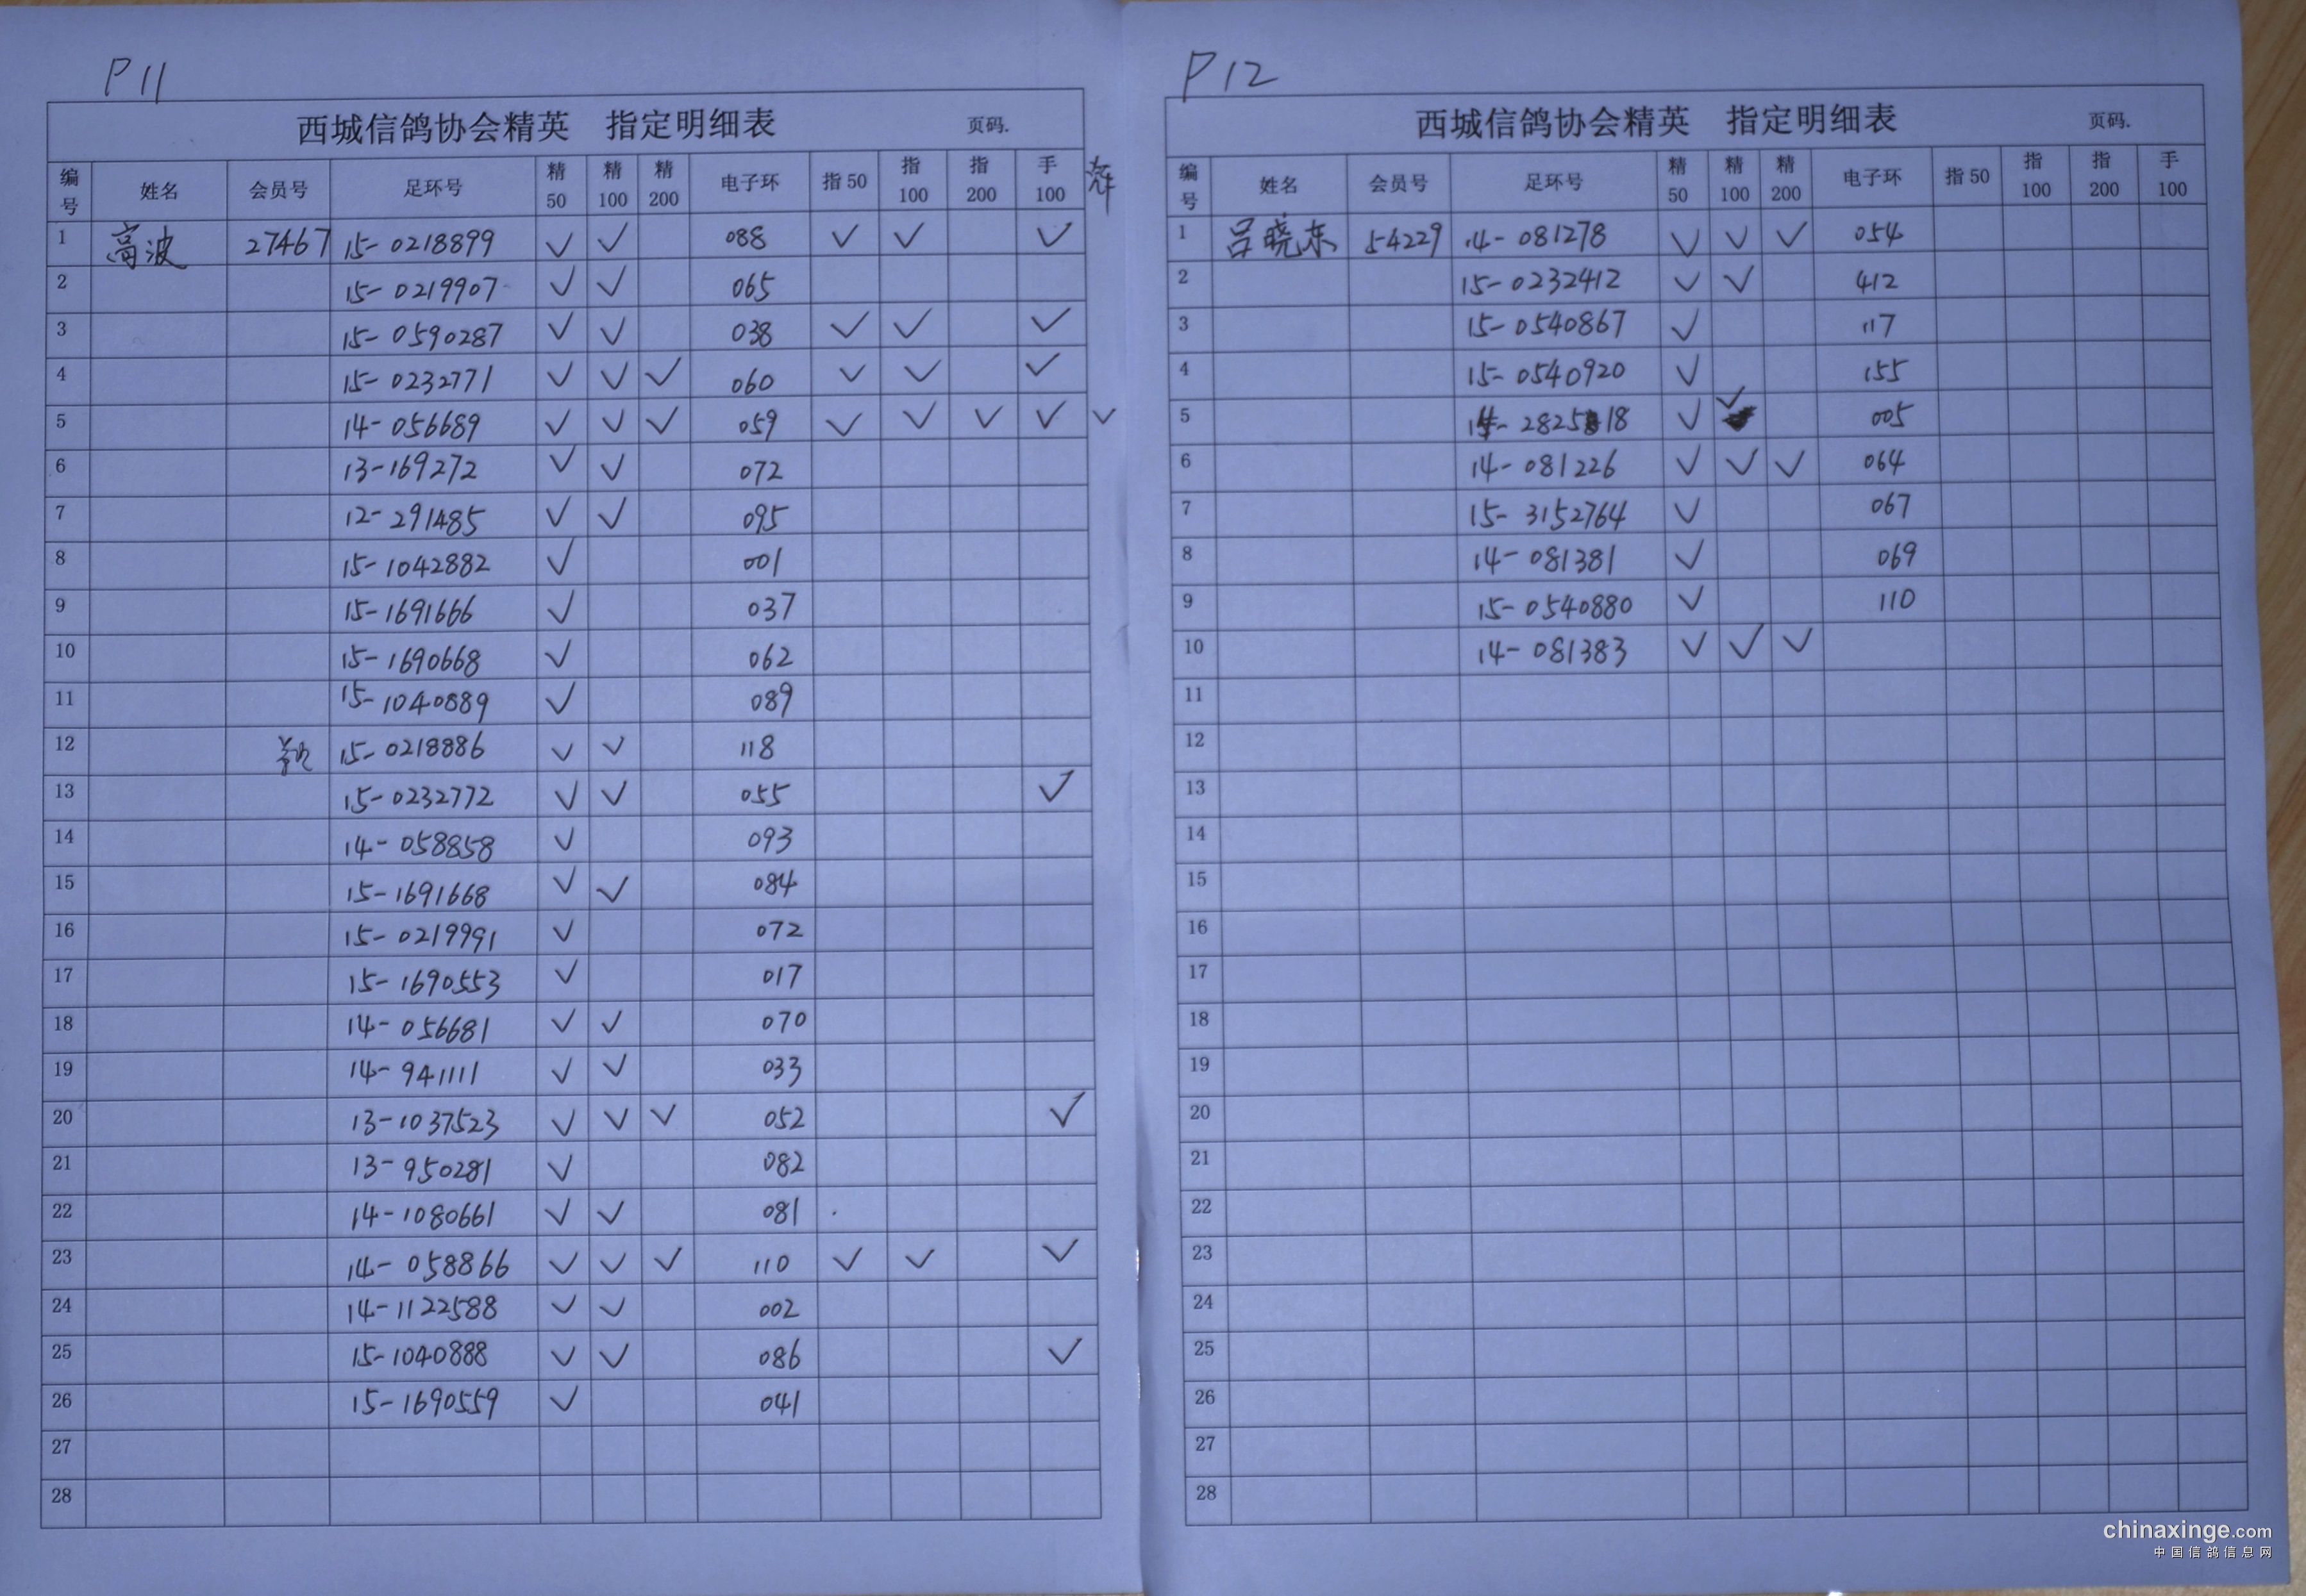 P11
西城信鸽协会精英 指定明细表 页码.
编号 姓名 会员号 足环号 精50 精100 精200 电子环 指50 指100 指200 手100
1 高波 27467 15-0218899 ✓ ✓ 088 ✓ ✓ ✓
2 15-0219907 ✓ ✓ 065
3 15-0590287 ✓ ✓ 038 ✓ ✓ ✓
4 15-0232771 ✓ ✓ ✓ 060 ✓ ✓ ✓
5 14-056689 ✓ ✓ ✓ 059 ✓ ✓ ✓ ✓ ✓
6 13-169272 ✓ ✓ 072
7 12-291485 ✓ ✓ 095
8 15-1042882 ✓ 001
9 15-1691666 ✓ 037
10 15-1690668 ✓ 062
11 15-1040889 ✓ 089
12 15-0218886 ✓ ✓ 118
13 15-0232772 ✓ ✓ 055 ✓
14 14-058858 ✓ 093
15 15-1691668 ✓ ✓ 084
16 15-0219991 ✓ 072
17 15-1690553 ✓ 017
18 14-056681 ✓ ✓ 070
19 14-941111 ✓ ✓ 033
20 13-1037523 ✓ ✓ ✓ 052 ✓
21 13-950281 ✓ 082
22 14-1080661 ✓ ✓ 081
23 14-058866 ✓ ✓ ✓ 110 ✓ ✓ ✓
24 14-1122588 ✓ ✓ 002
25 15-1040888 ✓ ✓ 086 ✓
26 15-1690559 ✓ 041
27
28
P12
西城信鸽协会精英 指定明细表 页码.
编号 姓名 会员号 足环号 精50 精100 精200 电子环 指50 指100 指200 手100
1 吕晓东 54229 14-081278 ✓ ✓ ✓ 054
2 15-0232412 ✓ ✓ 412
3 15-0540867 ✓ 117
4 15-0540920 ✓ 155
5 14-282518 ✓ ✓ 005
6 14-081226 ✓ ✓ ✓ 064
7 15-3152764 ✓ 067
8 14-081381 ✓ 069
9 15-0540880 ✓ 110
10 14-081383 ✓ ✓ ✓
11
12
13
14
15
16
17
18
19
20
21
22
23
24
25
26
27
28
chinaxinge.com
中国信鸽信息网